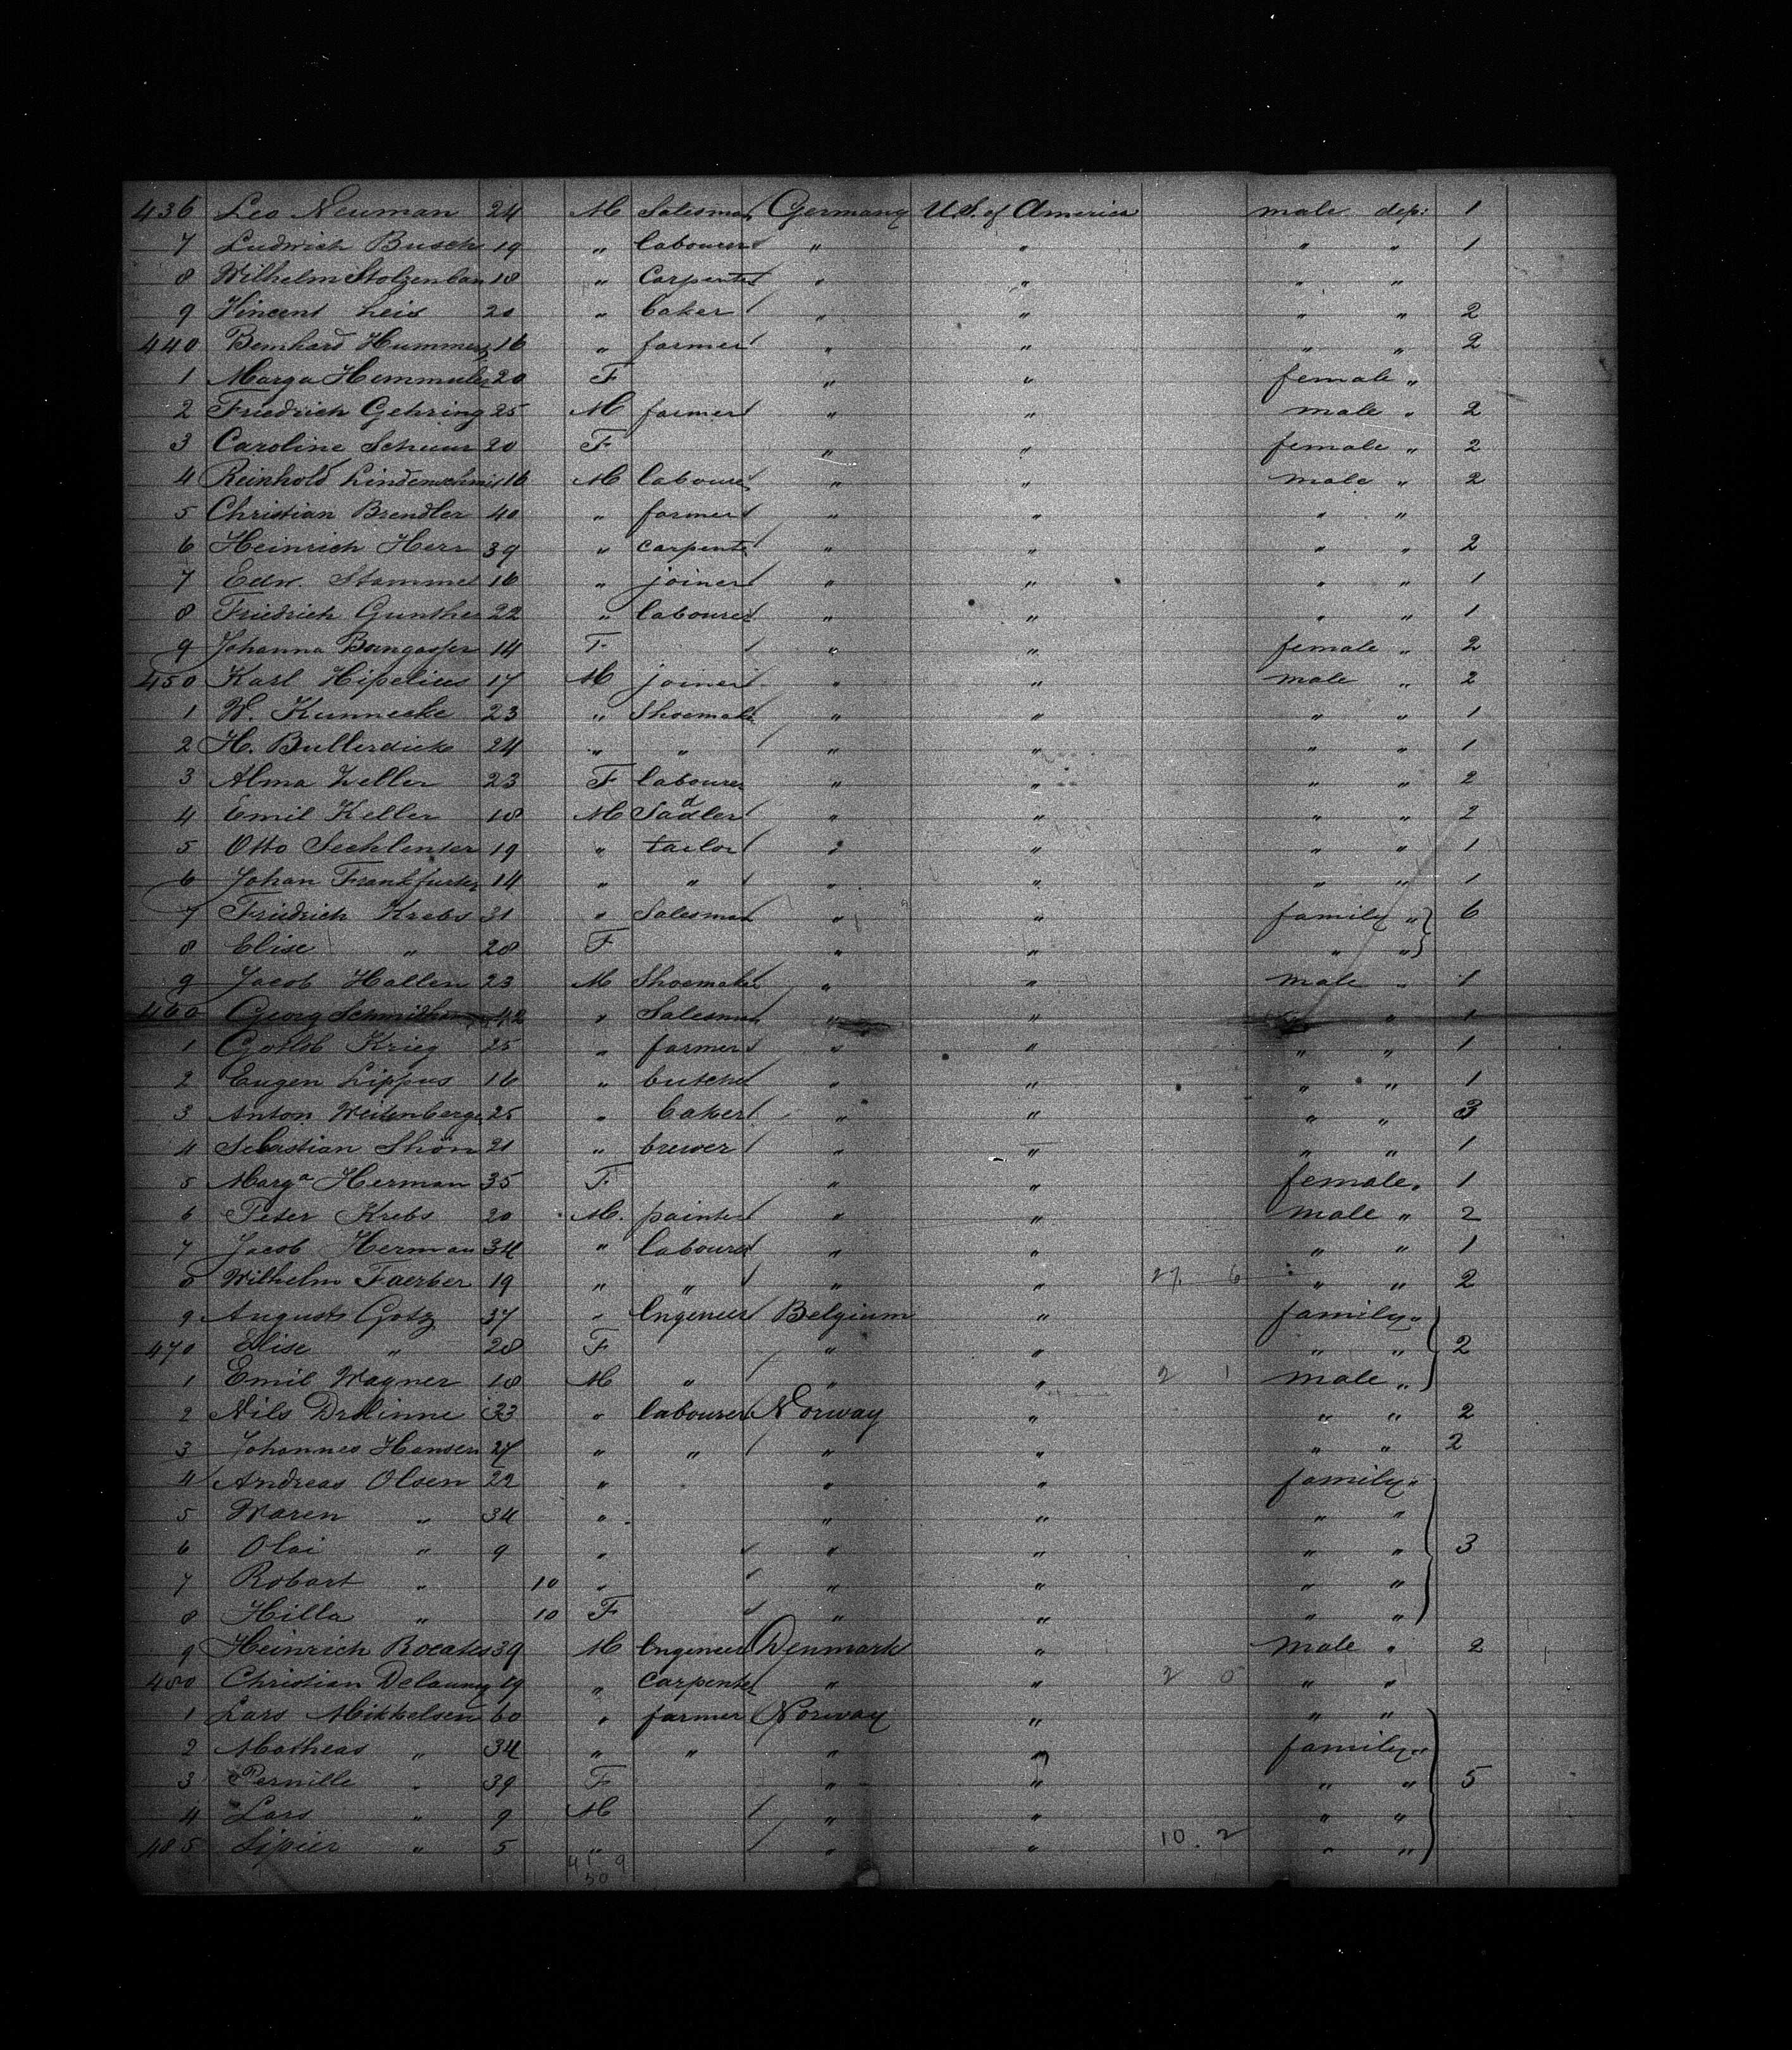 436 Leo Neuman 24 M Salesman Germany U.S. of America male dep: 1
7 Ludwich Busch 19 " labourer " " " " 1
8 Wilhelm Stolzenban 18 " Carpenter " " " "
9 Vincent Leis 20 " baker " " " " 2
440 Bernhard Hummer 16 " farmer " " " " 2
1 Marga Hemmuler 20 F " " female "
2 Friedrich Gehring 25 M farmer " " male " 2
3 Caroline Scheuer 20 F " " female " 2
4 Reinhold Lindenschmi 16 M labourer " " male " 2
5 Christian Brendler 40 " farmer " " " "
6 Heinrich Herr 39 " carpente " " " " 2
7 Edw. Stammel 16 " joiner " " " " 1
8 Friedrich Gunther 22 " labourer " " " " 1
9 Johanna Bungasser 14 F " " female " 2
450 Karl Hipelius 17 M joiner " " male " 2
1 W. Kunnecke 23 " Shoemake " " " " 1
2 H. Bullerdick 24 " " " " " " 1
3 Alma Zeller 23 F labourer " " " " 2
4 Emil Keller 18 M Saddler " " " " 2
5 Otto Sechlenter 19 " tailor " " " " 1
6 Johan Frankfurter 14 " " " " " " 1
7 Friedrich Krebs 31 " Salesman " " family " 6
8 Elise " 28 F " " " "
9 Jacob Hallen 23 M Shoemaker " " male " 1
460 Georg 42 " Salesman " " " " 1
1 Gotlob Krieg 25 " farmer " " " " 1
2 Eugen Lippus 16 " butcher " " " " 1
3 Anton Weitenberge 25 " baker " " " " 3
4 Sebastian Shön 21 " brewer " " " " 1
5 Marga Herman 35 F " " female " 1
6 Peter Krebs 20 M. painter " " male " 2
7 Jacob Herman 34 " labourer " " " " 1
8 Wilhelm Faerber 19 " " " " 27 6 " " 2
9 August Gotz 37 " Engineer Belgium " family "
470 Elise " 28 F " " " " 2
1 Emil Wagner 18 M " " " 2 1 male "
2 Nils 33 " labourer Norway " " " 2
3 Johannes Hansen 27 " " " " " " 2
4 Andreas Olsen 22 " " " family "
5 Waren " 34 " " " " "
6 Olai " 9 " " " " " 3
7 Robart " 10 " " " " "
8 Hilla " 10 F " " " "
9 Heinrich Bocates 39 M Engineer Denmark " male " 2
480 Christian Delauny 19 " Carpenter " " 2 0 " "
1 Lars Mikkelsen 60 " farmer Norway " " "
2 Matheas " 34 " " " " family "
3 Pernille " 39 F " " " " 5
4 Lars " 9 M " " " "
485 Sipier " 5 " " " 10. 2 " "
41 9
50